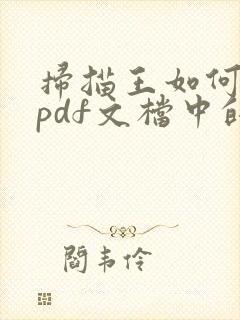 掃描王如何
pdf文檔中的
閻韋伶